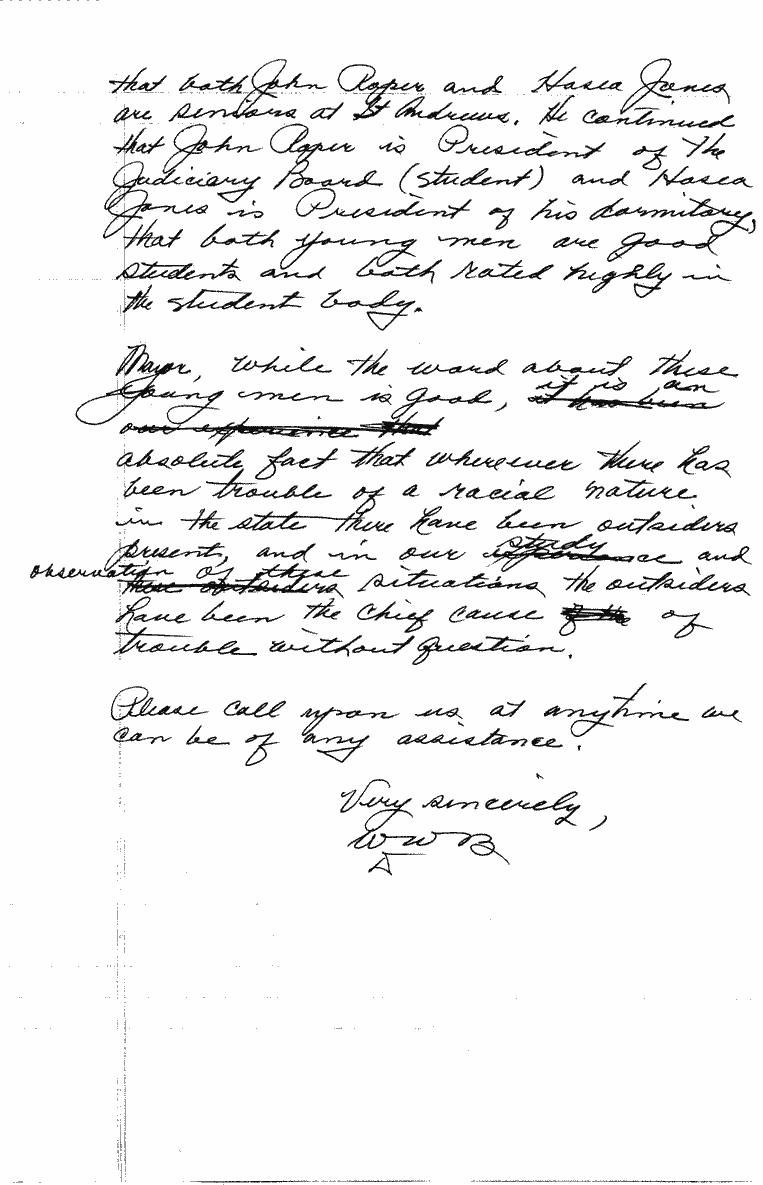 that both John Roper and Hosea Jones
are seniors at St Andrews. He continued
that John Roper is President of The
Judiciary Board (student) and Hosea
Jones is President of his dormitory,
that both young men are good
students and both rated highly in
the student body.
Mayor, while the word about these
young men is good, it has been it is an
our experience that
absolute fact that wherever there has
been trouble of a racial nature
in the state there have been outsiders
present, and in our experience study and
observation of these these outsiders situations the outsiders
have been the chief cause of the of
trouble without question.
Please call upon us at anytime we
can be of any assistance.
Very sincerely,
WWB